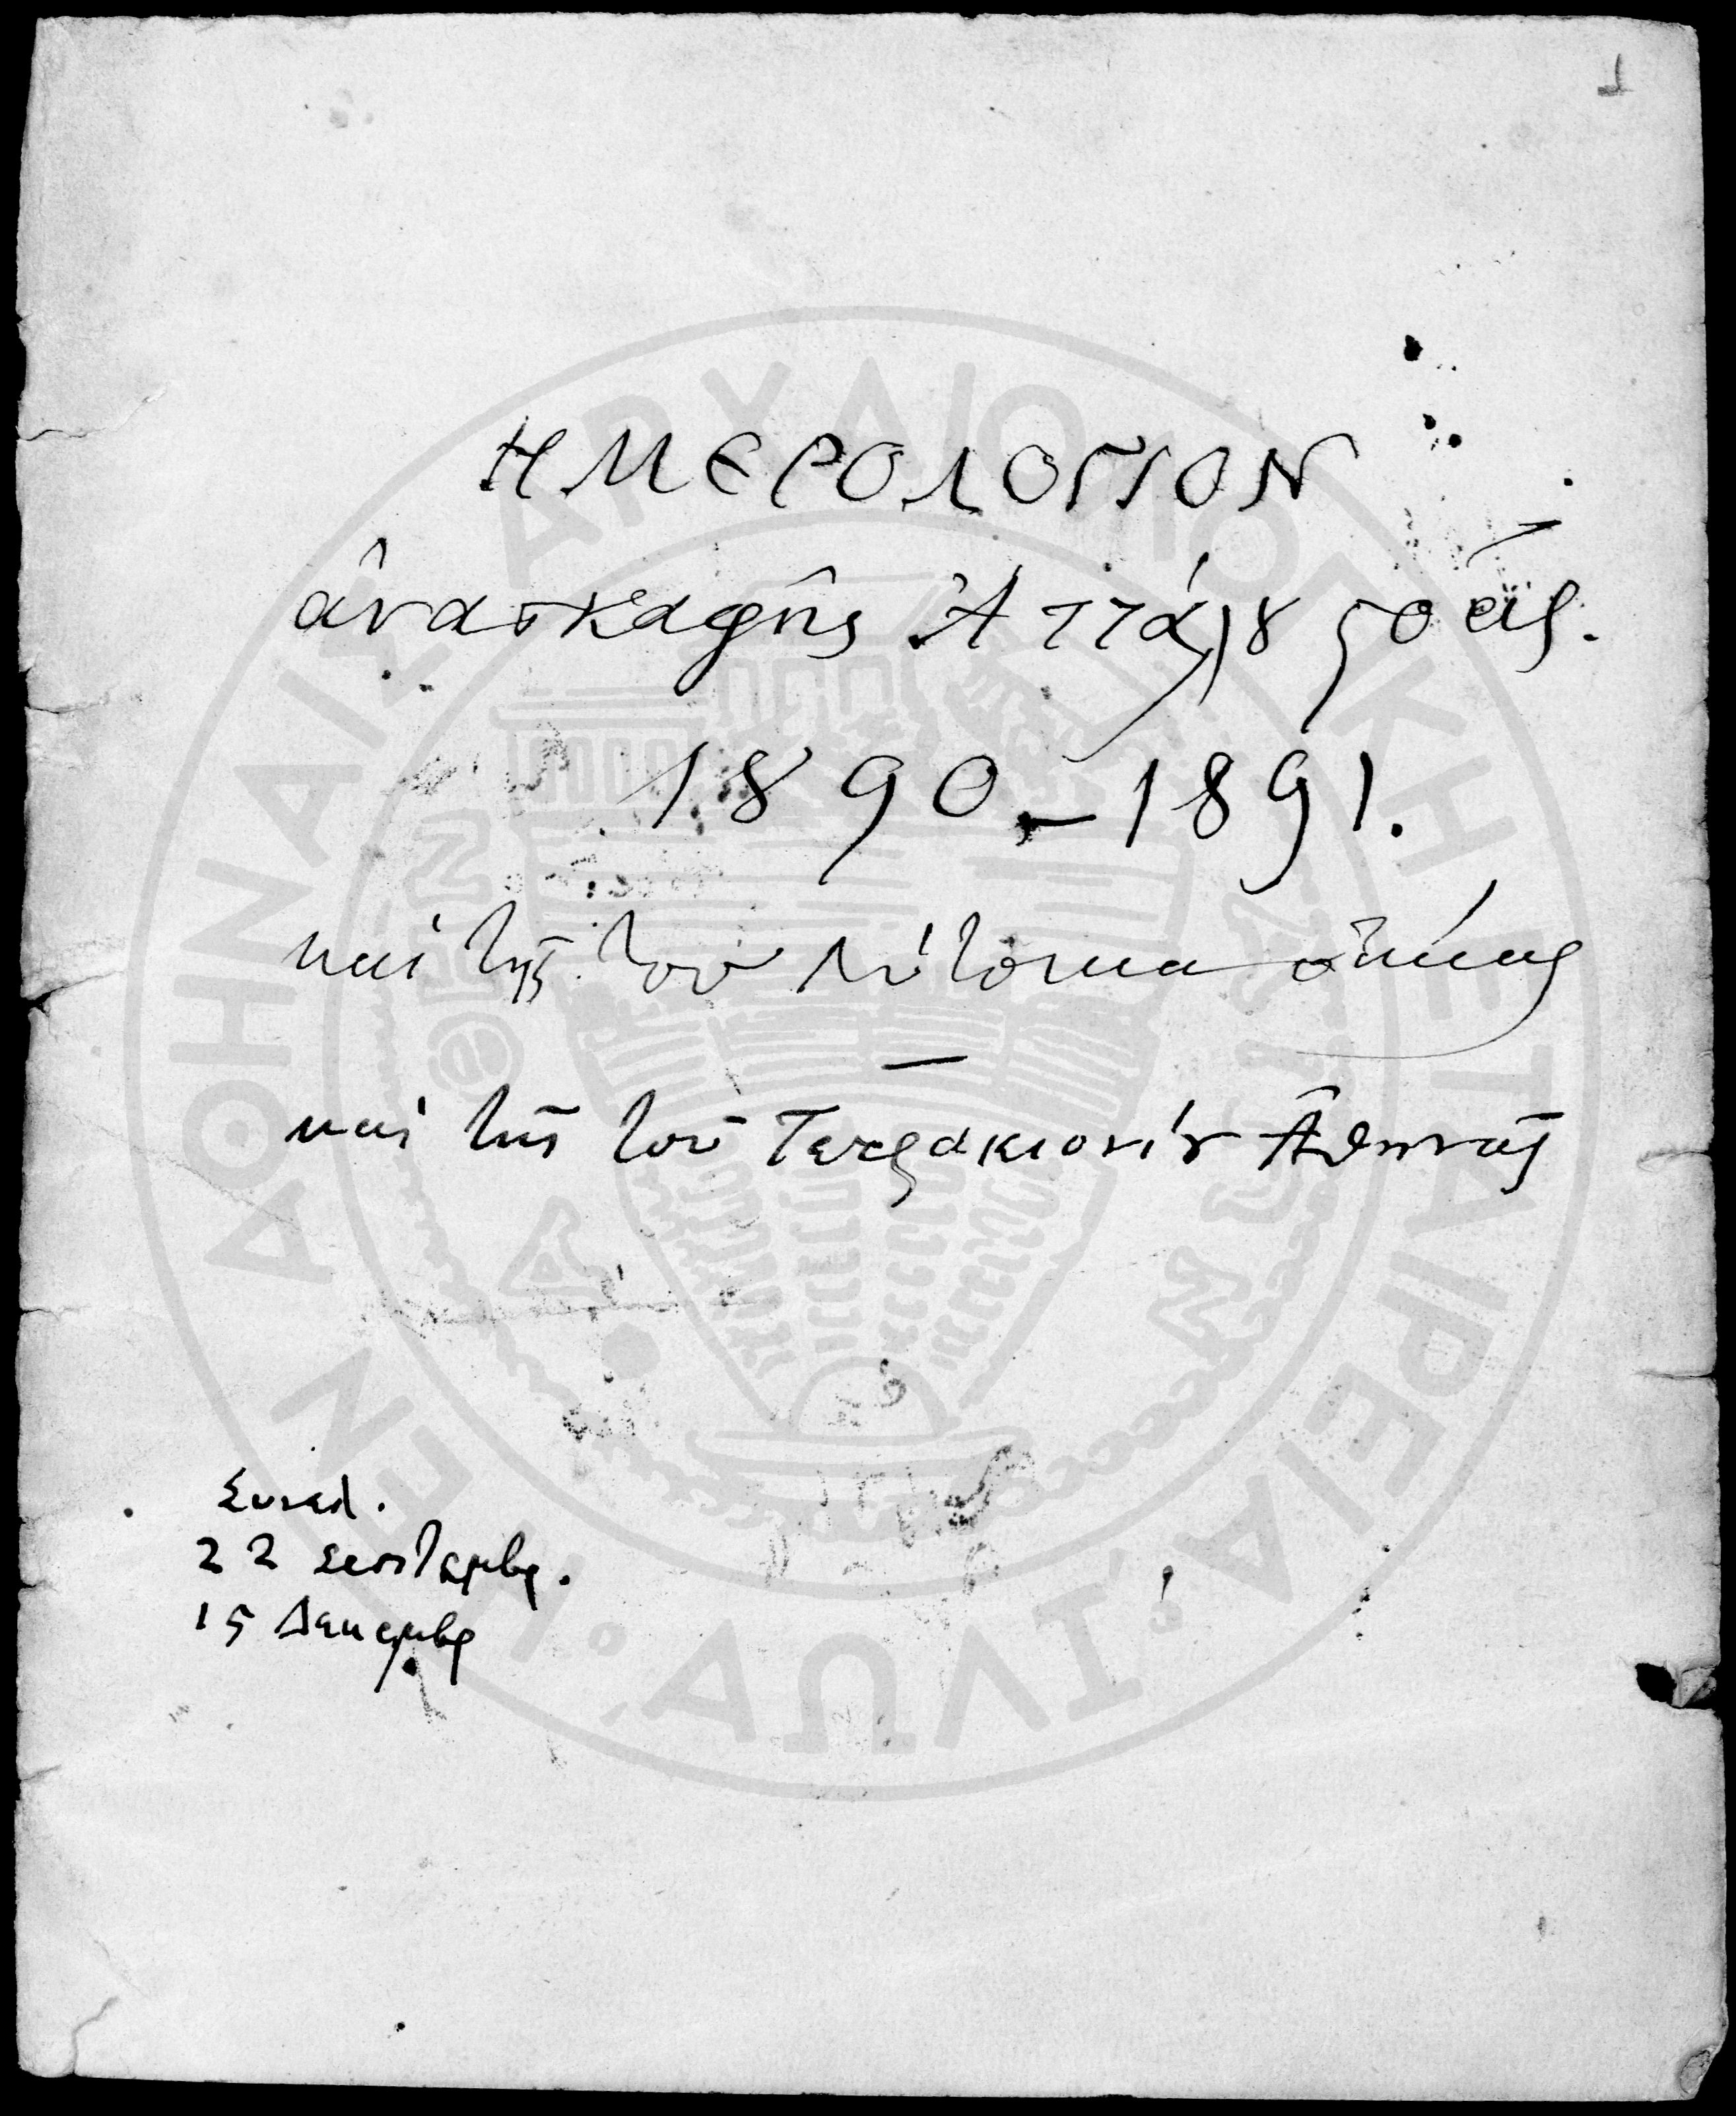 1
ΗΜΕΡΟΛΟΓΙΟΝ
ἀνασκαφῆς Ἀττάλου στοᾶς.
1890–1891.
καὶ τῆς τοῦ οἰκίας
—
καὶ τῆς τοῦ Τετρακιονίου Ἀθηνᾶς
Συνεδ.
22 Σεπτεμβρ.
15 Δεκεμβρ
Η ΕΝ ΑΘΗΝΑΙΣ ΑΡΧΑΙΟΛΟΓΙΚΗ ΕΤΑΙΡΕΙΑ